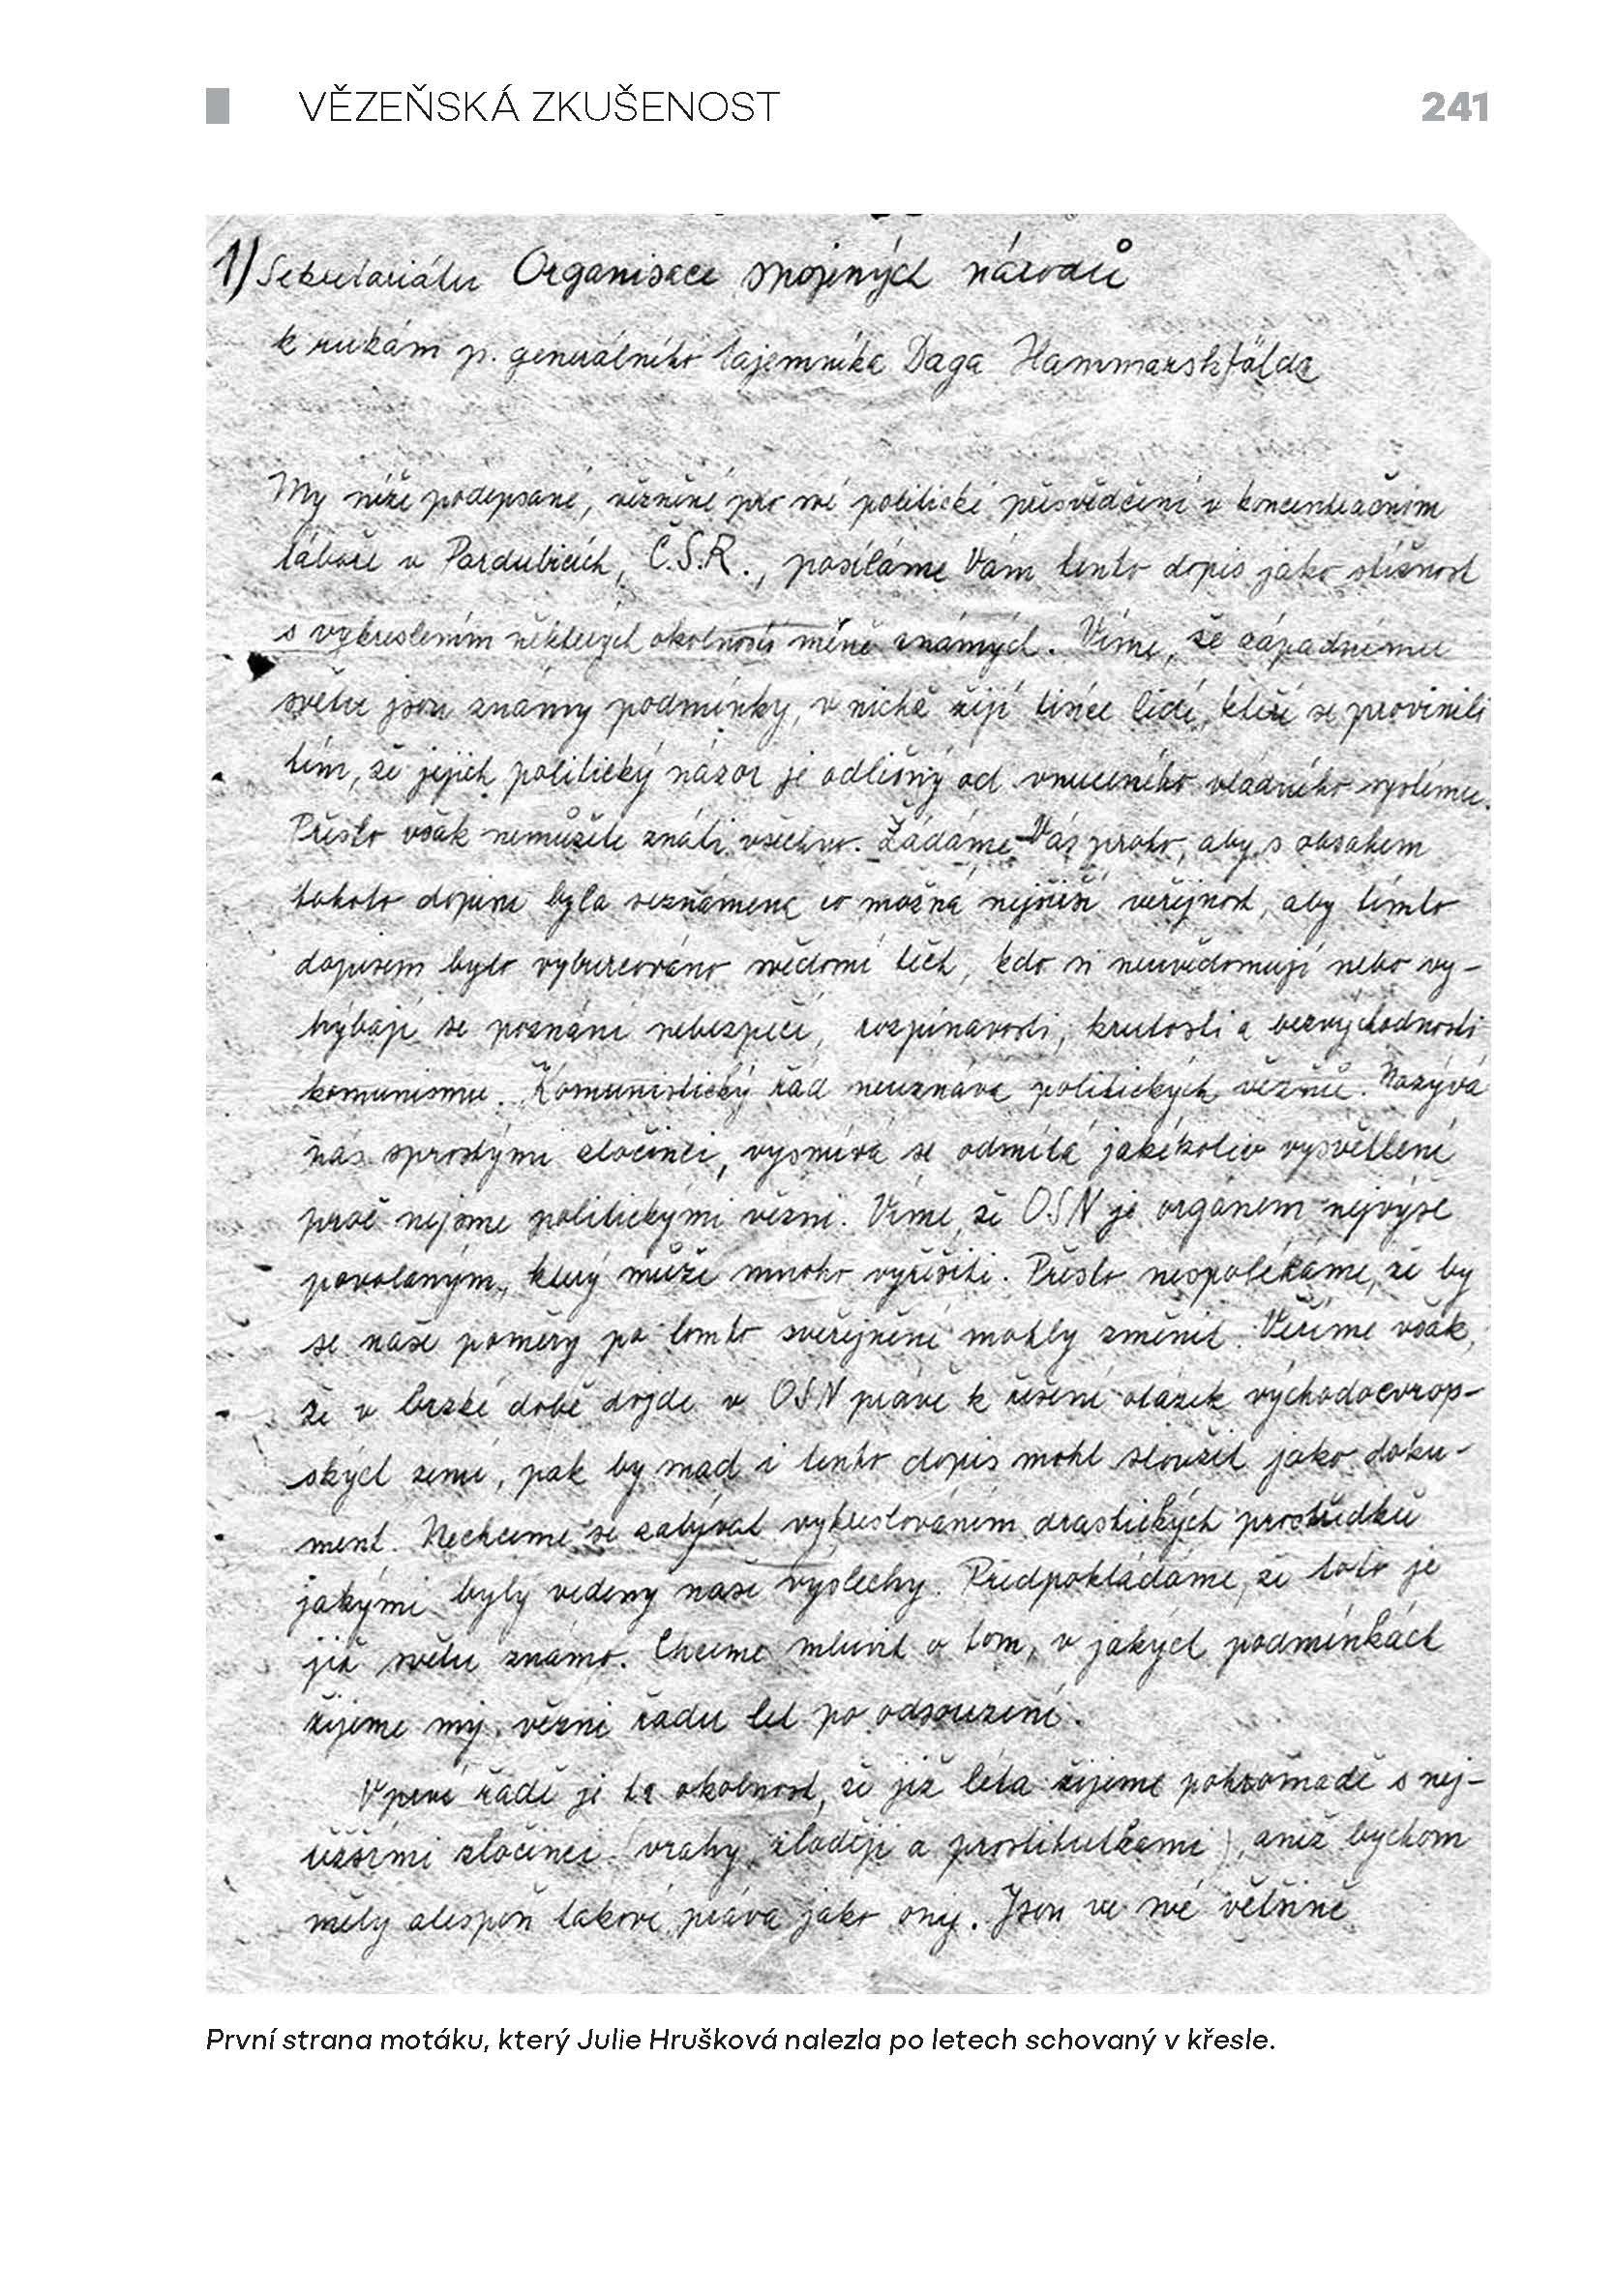 VĚZEŇSKÁ ZKUŠENOST
241
1) Sekretariátu Organisace spojených národů
k rukám p. generálního tajemníka Daga Hammarskjölda
My níže podepsané, vězněné pro své politické přesvědčení v koncentračním
táboře v Pardubicích, Č.S.R., posíláme Vám tento dopis jako stížnost
s vykreslením některých okolností méně známých. Víme, že západnímu
světu jsou známy podmínky, v nichž žijí tisíce lidí, kteří se provinili
tím, že jejich politický názor je odlišný od vnuceného vládního systému.
Přesto však nemůžete znáti všechno. Žádáme Vás proto, aby s obsahem
tohoto dopisu byla seznámena co možná nejširší veřejnost, aby tímto
dopisem bylo vyburcováno svědomí těch, kdo si neuvědomují nebo vy-
hýbají se poznání nebezpečí, rozpínavosti, krutosti a bezvýchodnosti
komunismu. Komunistický řád neuznává politických vězňů. Nazývá
nás sprostými zločinci, vysmívá se odmítá jakékoliv vysvětlení
proč nejsme politickými vězni. Víme, že OSN je orgánem nejvýše
povolaným, který může mnoho vyřešiti. Přesto nespoléháme, že by
se naše poměry po tomto zveřejnění mohly změnit. Věříme však,
že v brzké době dojde v OSN právě k řešení otázek východoevrop-
ských zemí, pak by snad i tento dopis mohl sloužit jako doku-
ment. Nechceme se zabývat vykreslováním drastických prostředků
jakými byly vedeny naše výslechy. Předpokládáme, že toto je
již světu známo. Chceme mluvit o tom, v jakých podmínkách
žijeme my, vězni řadu let po odsouzení.
V prvé řadě je to okolnost, že již léta žijeme pohromadě s nej-
těžšími zločinci (vrahy, zloději a prostitutkami), aniž bychom
měly alespoň taková práva jako ony. Jsou ve své většině
První strana motáku, který Julie Hrušková nalezla po letech schovaný v křesle.